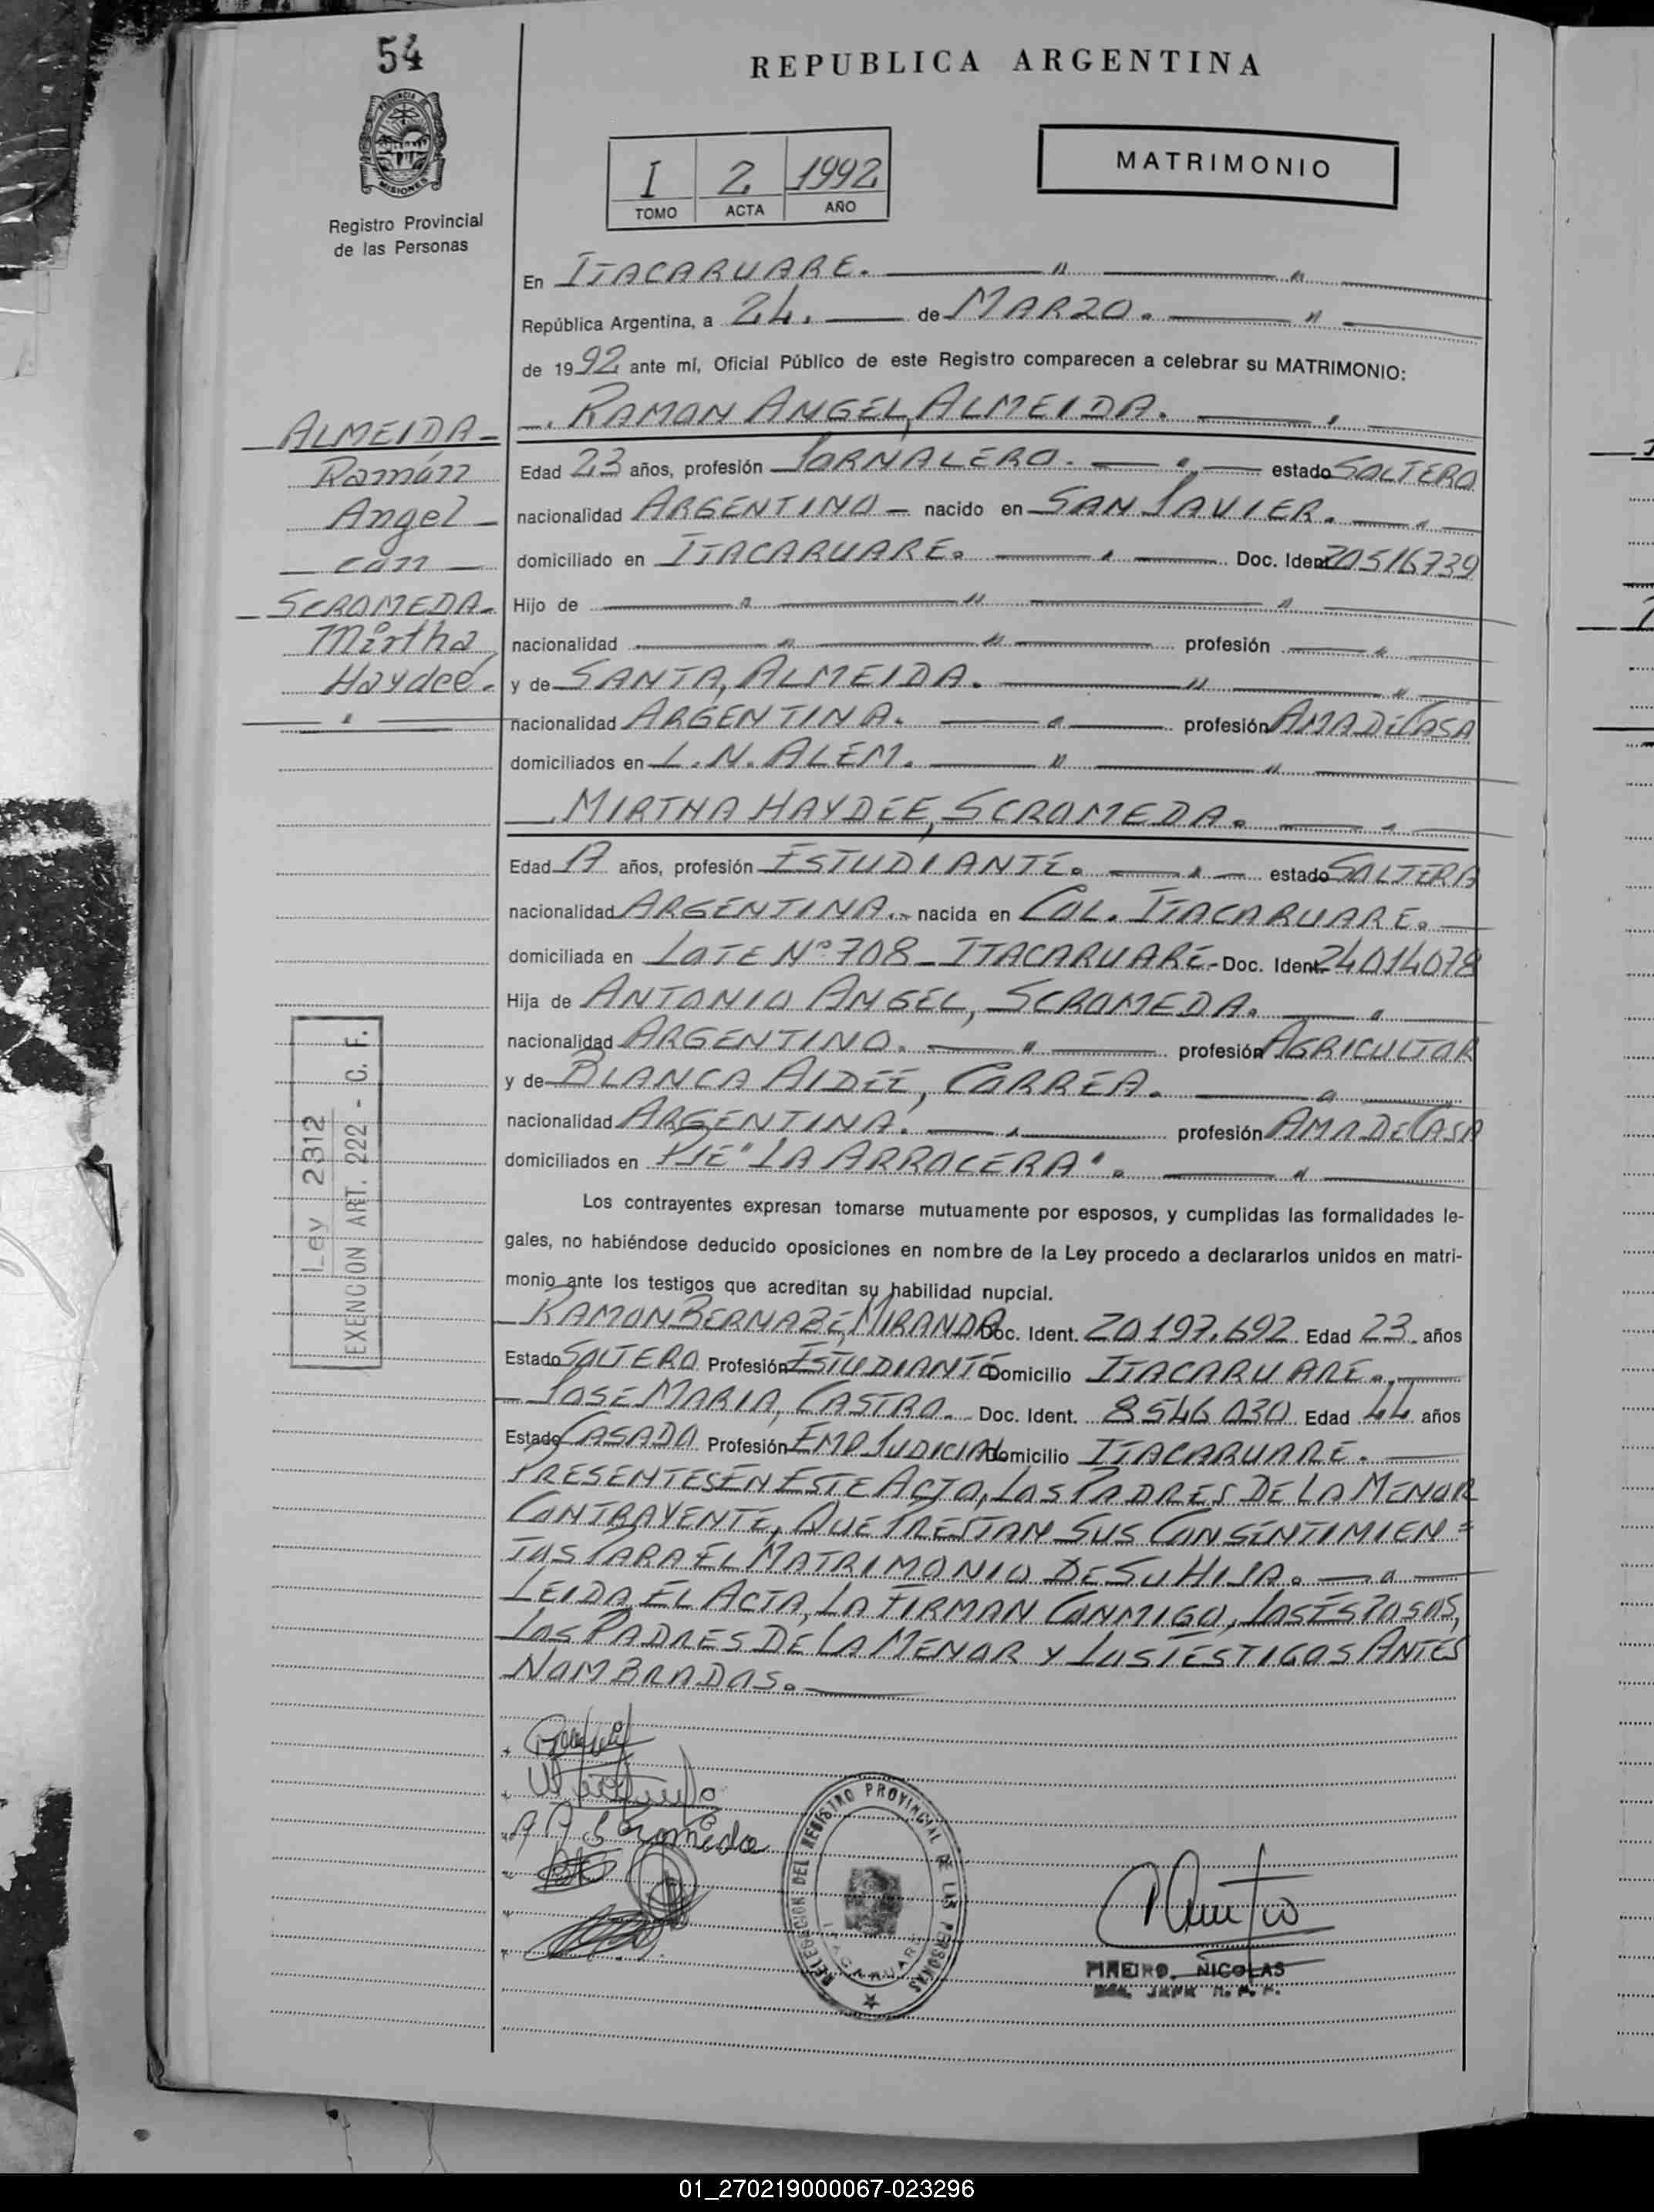 54
REPUBLICA ARGENTINA
PROVINCIA DE MISIONES
Registro Provincial
de las Personas
I 2 1992
TOMO ACTA AÑO
MATRIMONIO
En ITACARUARE.
República Argentina, a 24. de MARZO.
de 1992 ante mí, Oficial Público de este Registro comparecen a celebrar su MATRIMONIO:
ALMEIDA
Ramón
Angel
con
SCROMEDA
Mirtha
Haydeé.
RAMON ANGEL, ALMEIDA.
Edad 23 años, profesión JORNALERO. estado SOLTERO
nacionalidad ARGENTINO nacido en SAN JAVIER.
domiciliado en ITACARUARE. Doc. Ident. 20516739
Hijo de
nacionalidad profesión
y de SANTA, ALMEIDA.
nacionalidad ARGENTINA. profesión AMA DE CASA
domiciliados en L.N. ALEM.
MIRTHA HAYDEE, SCROMEDA.
Edad 17 años, profesión ESTUDIANTE. estado SOLTERA
nacionalidad ARGENTINA. nacida en COL. ITACARUARE.
domiciliada en LOTE Nº 708 - ITACARUARE - Doc. Ident. 24014078
Hija de ANTONIO ANGEL, SCROMEDA.
nacionalidad ARGENTINO. profesión AGRICULTOR
y de BLANCA AIDEE, CORREA.
nacionalidad ARGENTINA. profesión AMA DE CASA
domiciliados en PJE "LA ARROCERA".
Ley 2312
EXENCION ART. 222 - C. F.
Los contrayentes expresan tomarse mutuamente por esposos, y cumplidas las formalidades le-
gales, no habiéndose deducido oposiciones en nombre de la Ley procedo a declararlos unidos en matri-
monio ante los testigos que acreditan su habilidad nupcial.
RAMON BERNABE, MIRANDA Doc. Ident. 20197.692 Edad 23 años
Estado SOLTERO Profesión ESTUDIANTE Domicilio ITACARUARE.
JOSE MARIA, CASTRO. Doc. Ident. 8546030 Edad 44 años
Estado CASADO Profesión EMP JUDICIAL Domicilio ITACARUARE.
PRESENTES EN ESTE ACTO, LOS PADRES DE LA MENOR
CONTRAYENTE, QUE PRESTAN SUS CONSENTIMIEN=
TOS PARA EL MATRIMONIO DE SU HIJA.
LEIDA EL ACTA, LA FIRMAN CONMIGO, LOS ESPOSOS,
LOS PADRES DE LA MENOR Y LOS TESTIGOS ANTES
NOMBRADOS.
A A Scromeda
DELEGACION DEL REGISTRO PROVINCIAL DE LAS PERSONAS
ITACARUARE
PIÑEIRO, NICOLAS
01_270219000067-023296